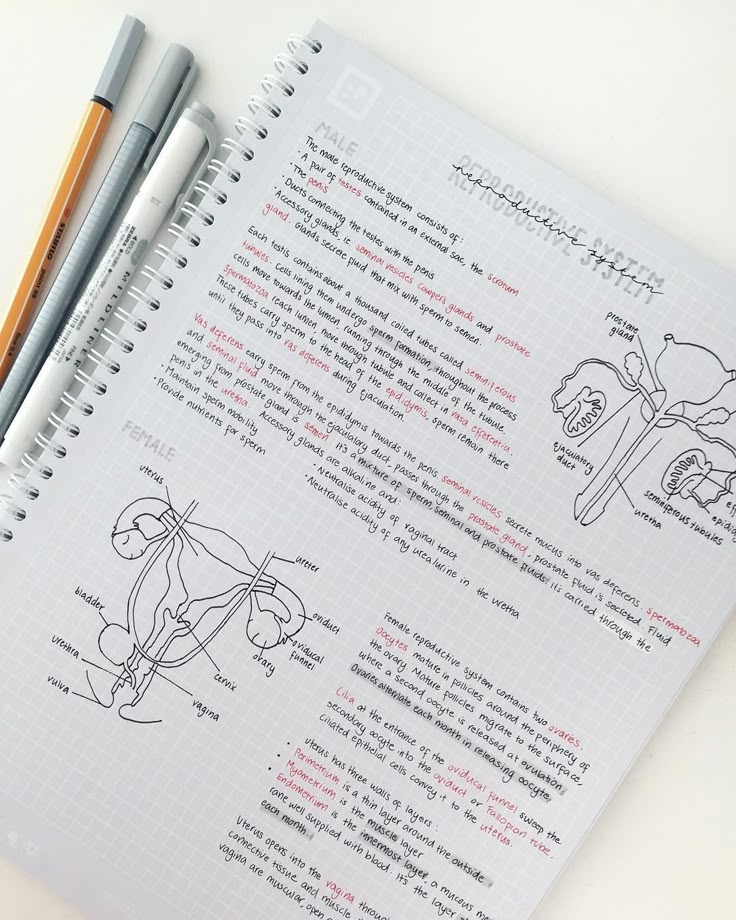 REPRODUCTIVE SYSTEM
reproductive system
MALE
The male reproductive system consists of:
• A pair of testes contained in an external sac, the scrotum
• The penis
• Ducts connecting the testes with the penis
• Accessory glands, i.e. seminal vesicles, Cowper's glands and prostate
gland. Glands secrete fluid that mix with sperm to semen.
Each testis contains about a thousand coiled tubes called seminiferous
tubules. Cells lining them undergo sperm formation, throughout the process
cells move towards the lumen, running through the middle of the tubule.
Spermatozoa reach lumen, move through tubule and collect in vasa efferentia.
These tubes carry sperm to the head of the epididymis, sperm remain there
until they pass into vas deferens during ejaculation.
Vas deferens carry sperm from the epididymis towards the penis. seminal vesicles secrete mucus into vas deferens. spermatozoa
and seminal fluid move through the ejaculatory duct, passes through the prostate gland, prostate fluid is secreted. Fluid
emerging from prostate gland is semen. It's a mixture of sperm, seminal and prostate fluids. It's carried through the
penis in the uretha. Accessory glands are alkaline and:
• Maintain sperm mobility
• Provide nutrients for sperm
• Neutralise acidity of vaginal tract
• Neutralise acidity of any urea/urine in the uretha
prostate
gland
ejaculatory
duct
uretha
seminiferous tubules
FEMALE
uterus
ureter
bladder
urethra
vulva
oviduct
oviducal
funnel
ovary
cervix
vagina
Female reproductive system contains two ovaries.
Oocytes mature in policies, around the periphery of
the ovary. Mature follicles migrate to the surface,
where a second oocyte is released at ovulation.
Ovaries alternate each month in releasing oocyte.
Cilia at the entrance of the oviducal funnel sweep the
secondary oocyte into the oviduct or Fallopion tube.
Ciliated epithelal cells convey it to the uterus.
uterus has three walls of layers:
• Perimetrium is a thin layer around the outside
• Myometrium is the muscle layer
• Endometrium is the innermost layer, a mucous
rane well supplied with blood. It's the layer
each month.
Uterus opens into the vagina through
connective tissue and muscle
vagina are muscular, open
MILDLINER